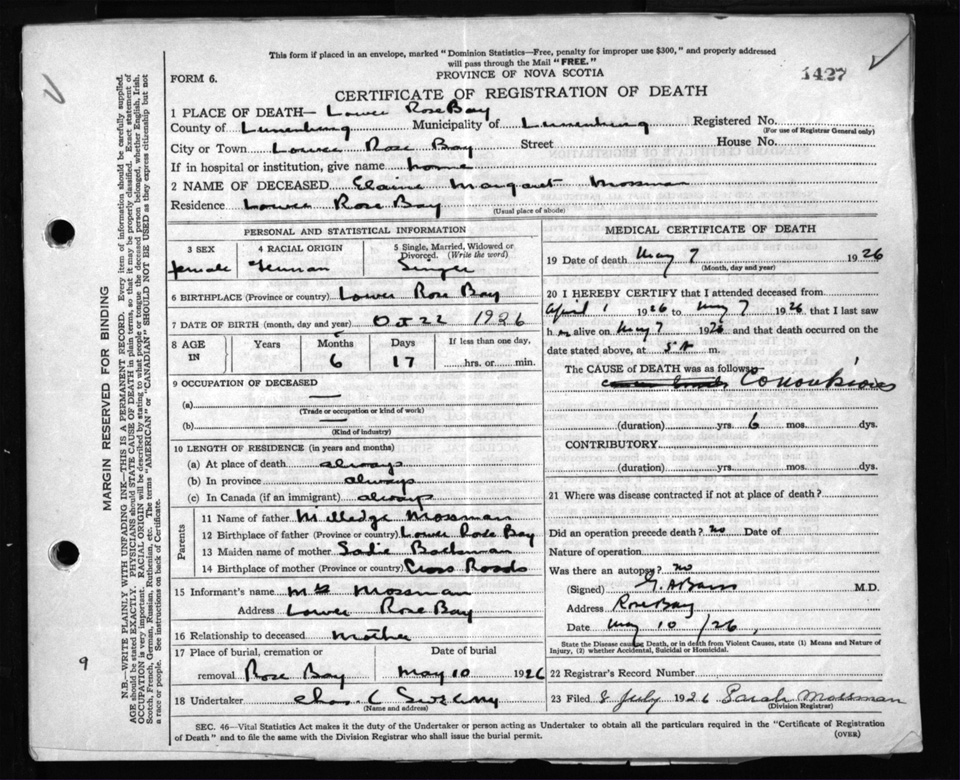 This form if placed in an envelope, marked "Dominion Statistics—Free, penalty for improper use $300," and properly addressed
will pass through the Mail "FREE."
1427
FORM 6.
PROVINCE OF NOVA SCOTIA
CERTIFICATE OF REGISTRATION OF DEATH
1 PLACE OF DEATH— Lower Rose Bay
County of Lunenburg Municipality of Lunenburg Registered No.
(For use of Registrar General only)
City or Town Lower Rose Bay Street House No.
If in hospital or institution, give name home
2 NAME OF DECEASED Elaine Margaret Mossman
Residence Lower Rose Bay (Usual place of abode)
PERSONAL AND STATISTICAL INFORMATION
3 SEX 4 RACIAL ORIGIN 5 Single, Married, Widowed or
Divorced. (Write the word)
female German Single
6 BIRTHPLACE (Province or country) Lower Rose Bay
7 DATE OF BIRTH (month, day and year) Oct 22 1926
8 AGE IN Years Months Days If less than one day,
6 17 hrs. or min.
9 OCCUPATION OF DECEASED
(a) —
(Trade or occupation or kind of work)
(b) —
(Kind of industry)
10 LENGTH OF RESIDENCE (in years and months)
(a) At place of death always
(b) In province always
(c) In Canada (if an immigrant) always
Parents
11 Name of father Milledge Mossman
12 Birthplace of father (Province or country) Lower Rose Bay
13 Maiden name of mother Sadie Backman
14 Birthplace of mother (Province or country) Cross Roads
15 Informant's name Mrs Mossman
Address Lower Rose Bay
16 Relationship to deceased Mother
17 Place of burial, cremation or Date of burial
removal Rose Bay May 10 1926
18 Undertaker Chas. C Sweeny
(Name and address)
MEDICAL CERTIFICATE OF DEATH
19 Date of death May 7 1926
(Month, day and year)
20 I HEREBY CERTIFY that I attended deceased from
April 1 1926 to May 7 1926, that I last saw
h er alive on May 7 1926 and that death occurred on
date stated above, at 5 A m.
The CAUSE of DEATH was as follows:
Convulsions
(duration) yrs. 6 mos. dys.
CONTRIBUTORY
(duration) yrs. mos. dys.
21 Where was disease contracted if not at place of death?
Did an operation precede death? no Date of
Nature of operation
Was there an autopsy? no
(Signed) M.D.
Address Rose Bay
Date May 10 /26
State the Disease causing Death, or in death from Violent Causes, state (1) Means and Nature of
Injury, (2) whether Accidental, Suicidal or Homicidal.
22 Registrar's Record Number
23 Filed 8 July 1926 Sarah Mossman
(Division Registrar)
SEC. 46—Vital Statistics Act makes it the duty of the Undertaker or person acting as Undertaker to obtain all the particulars required in the "Certificate of Registration
of Death" and to file the same with the Division Registrar who shall issue the burial permit. (OVER)
MARGIN RESERVED FOR BINDING
N.B.—WRITE PLAINLY WITH UNFADING INK—THIS IS A PERMANENT RECORD. Every item of information should be carefully supplied.
AGE should be stated EXACTLY. PHYSICIANS should STATE CAUSE OF DEATH in plain terms, so that it may be properly classified. Exact statement of
OCCUPATION is very important. RACIAL ORIGIN will be described by stating to what people or tongue the deceased person belonged, whether English, Irish,
Scotch, French, German, Russian, Ruthenian, etc. The terms "AMERICAN" or "CANADIAN" SHOULD NOT BE USED as they express citizenship but not
a race or people. See instructions on back of Certificate.
9